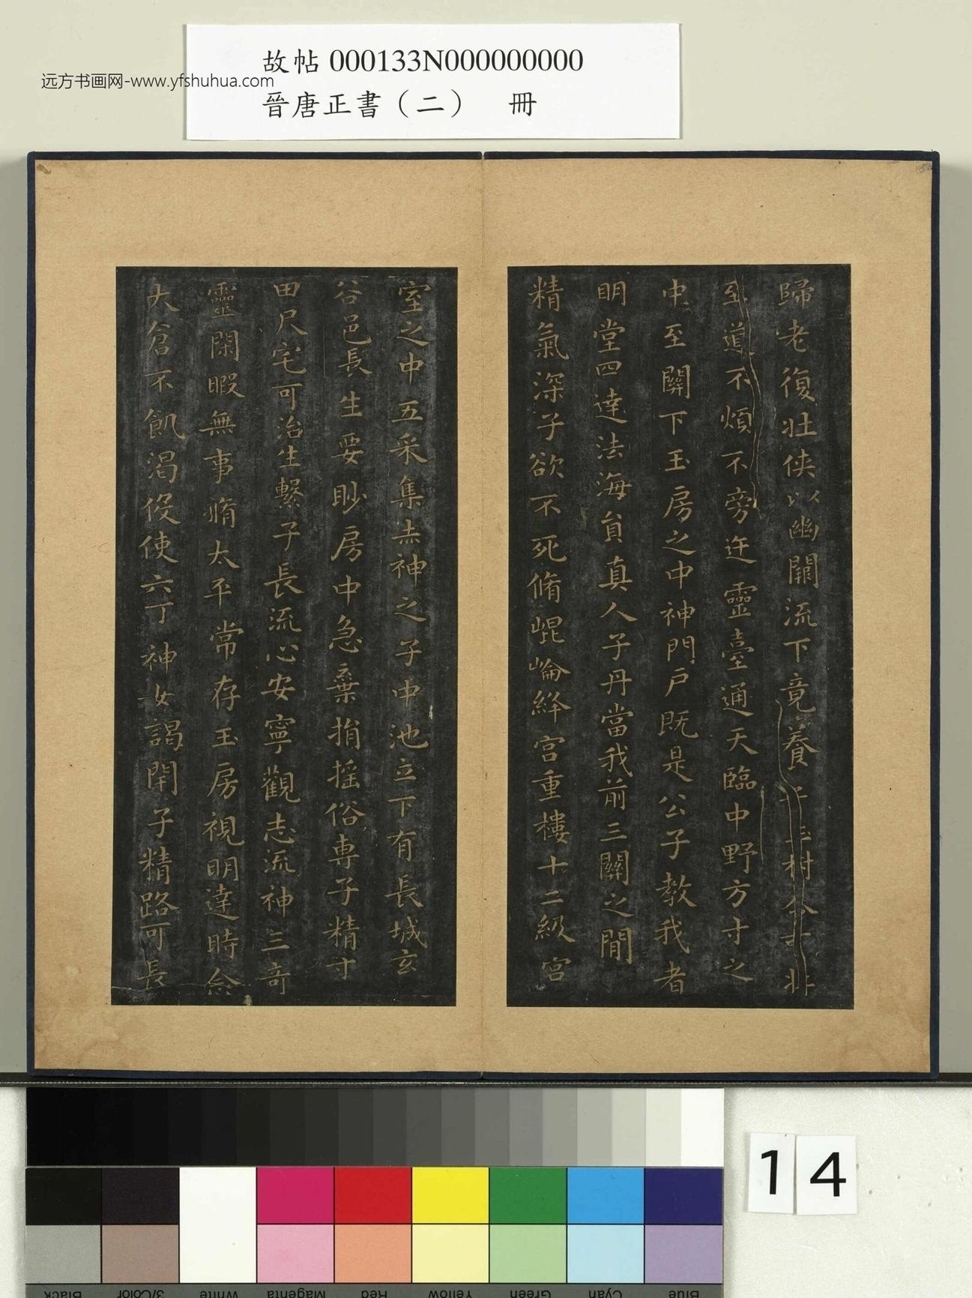 故帖 000133N000000000
远方书画网-www.yfshuhua.com
晉唐正書（二） 冊
歸老復壯俠以幽闕流下竟養子玉樹令可壯
至道不煩不旁迕靈臺通天臨中野方寸之
中至關下玉房之中神門戶既是公子教我者
明堂四達法海負真人子丹當我前三關之間
精氣深子欲不死脩崐崘絳宮重樓十二級宮
室之中五采集赤神之子中池立下有長城玄
谷邑長生要眇房中急棄捐搖俗專子精寸
田尺宅可治生繫子長流心安寧觀志流神三奇
靈閑暇無事脩太平常存玉房視明達時念
大倉不飢渴役使六丁神女謁閉子精路可長
14
Black
3/Color
White
Magenta
Red
Yellow
Green
Cyan
Blue